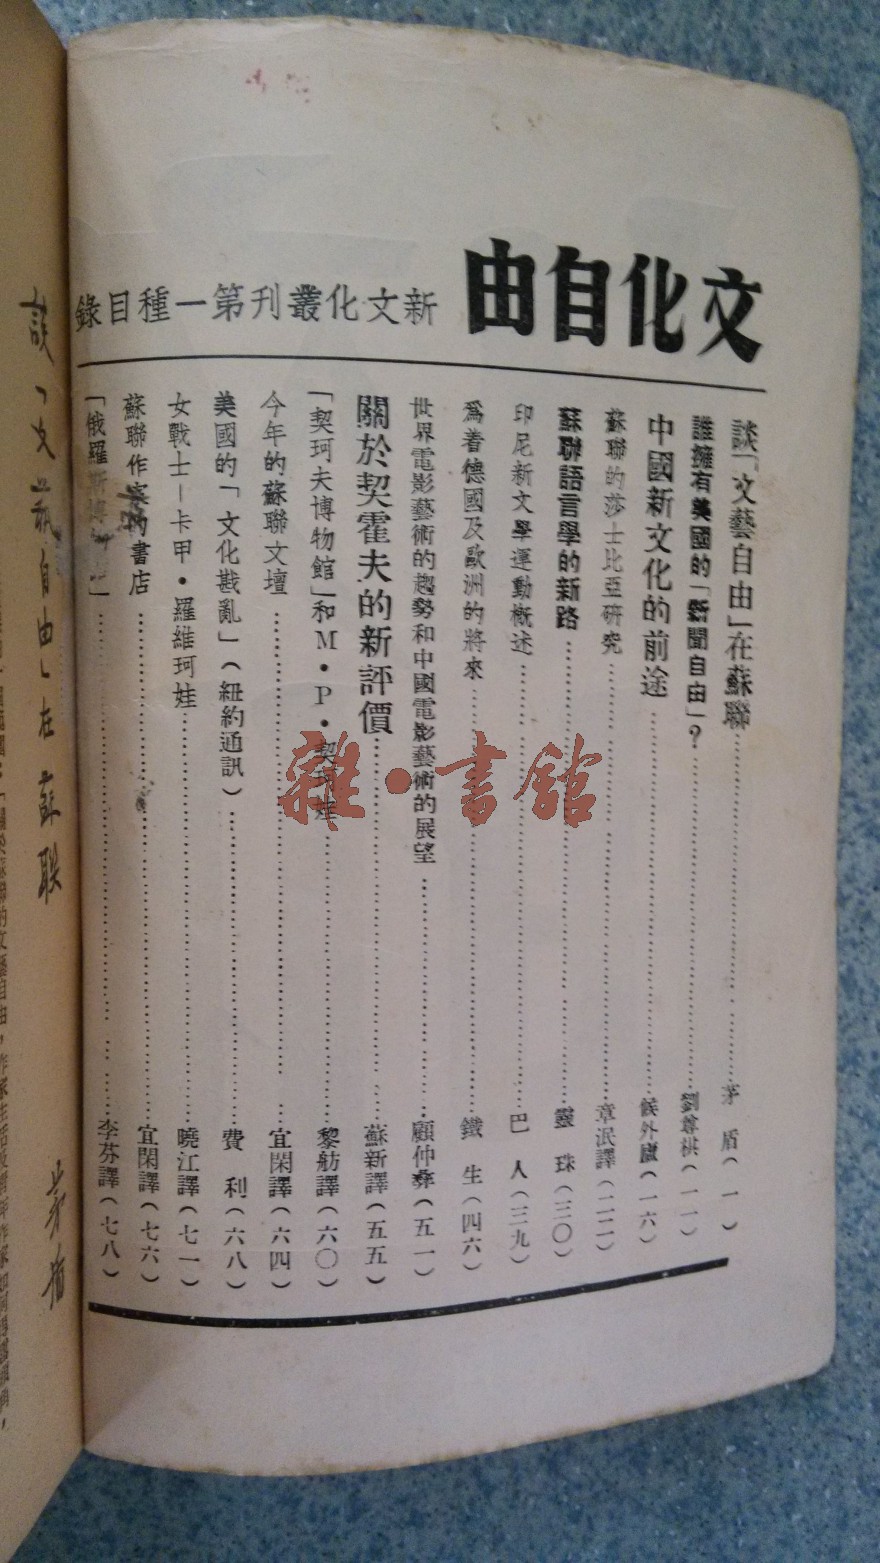 文化自由
新文化叢刊第一種目錄
談「文藝自由」在蘇聯…………茅盾（一）
誰擁有美國的「新聞自由」？…………劉尊棋（一一）
中國新文化的前途…………侯外廬（一六）
蘇聯的莎士比亞研究…………章泯譯（二二）
蘇聯語言學的新路…………靈珠（三〇）
印尼新文學運動概述…………巴人（三九）
爲着德國及歐洲的將來…………鐵生（四六）
世界電影藝術的趨勢和中國電影藝術的展望…………顧仲彝（五一）
關於契霍夫的新評價…………蘇新譯（五五）
「契珂夫博物館」和M·P·契珂娃…………黎舫譯（六〇）
今年的蘇聯文壇…………宜閑譯（六四）
美國的「文化戡亂」（紐約通訊）…………費利（六八）
女戰士－卡甲·羅維珂娃…………曉江譯（七一）
蘇聯作家的書店…………宜閑譯（七六）
「俄羅斯…………李芬譯（七八）
談「文藝自由」在蘇联
茅盾
雜·書館